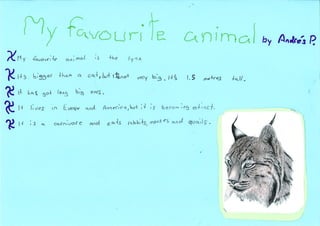 My favourite animal by Andrés P.
My favourite animal is the lynx
Its bigger than a cat, but its not very big. Its 1.5 metres tall.
it has got long big ears.
It lives in Europe and America, but it is becoming extinct.
It is a carnivore and eats rabbits, mouses and quails.